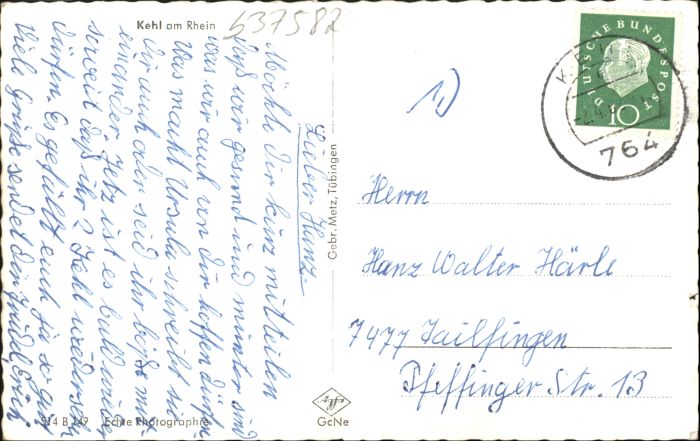 Kehl am Rhein
537582
Lieber Hanz
Möchte dir kurz mitteilen
daß wir gesund und munter sind
was wir auch von dir hoffen dürfen
Was macht Ursula schreibt sie
dir auch oder seid ihr böse mit
einander Jetz ist es bald wieder
soweit daß ihr 2 Kehl wiedersehen
dürfen. Es gefällt euch ja so gut
Viele Grüße sendet dir
Gebr. Metz, Tübingen
514 B 149 Echte Photographie
GcNe
1)
DEUTSCHE BUNDESPOST
10
764
Herrn
Hanz Walter Härle
7477 Tailfingen
Pfeffinger Str. 13